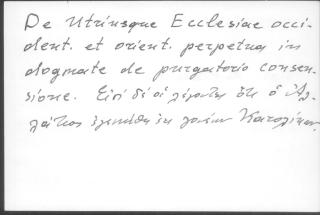 De Utriusque Ecclesiae occi-
dent. et orient. perpetua in
dogmate de purgatorio consen-
sione. Εἰσὶ δὲ οἱ λέγοντες ὅτι ὁ Ἀλ-
λάτιος ἐγεννήθη ἐκ γονέων